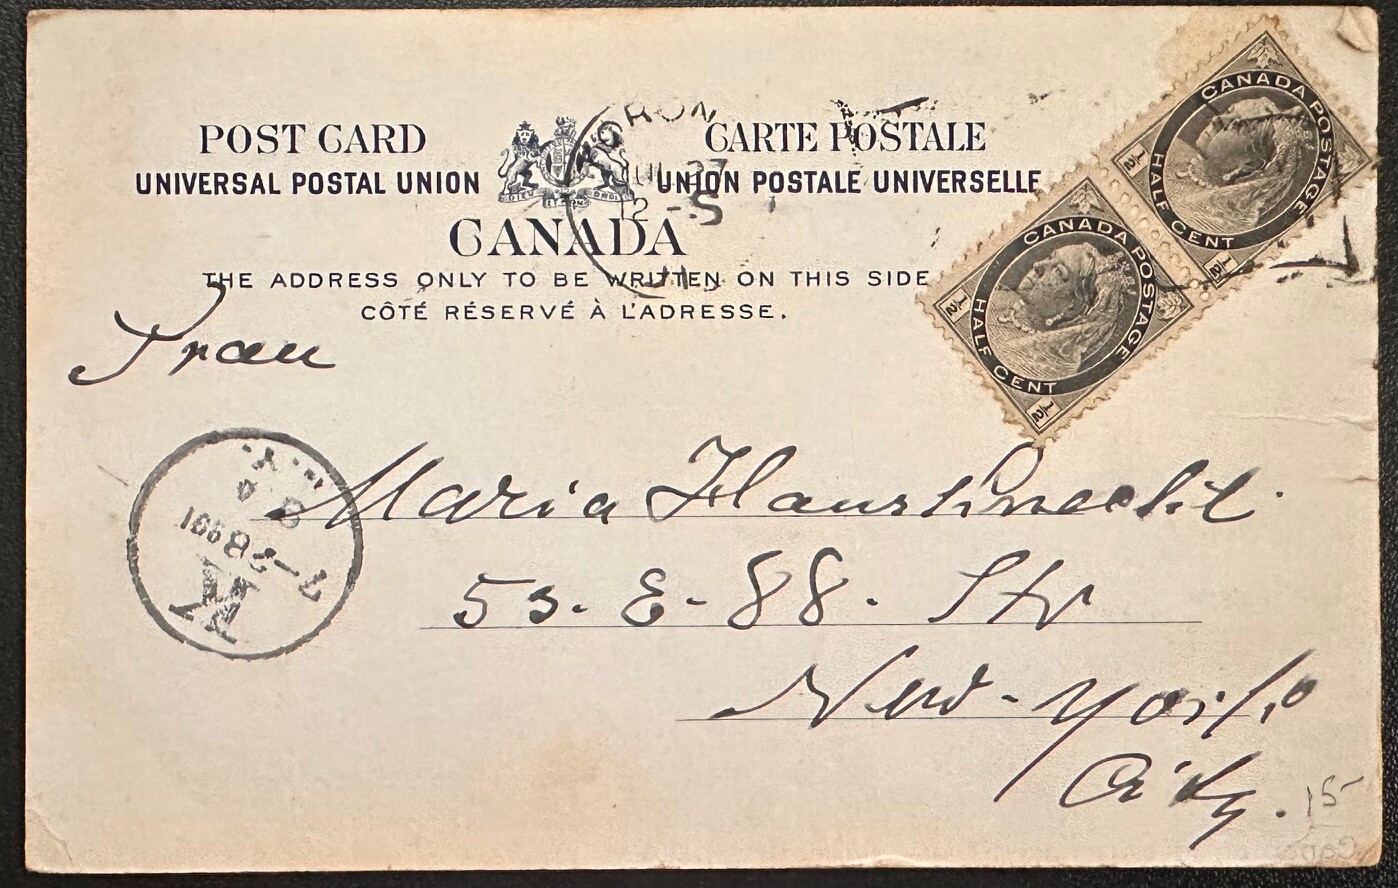 POST CARD CARTE POSTALE
UNIVERSAL POSTAL UNION UNION POSTALE UNIVERSELLE
CANADA
THE ADDRESS ONLY TO BE WRITTEN ON THIS SIDE
CÔTÉ RÉSERVÉ À L'ADRESSE.
CANADA POSTAGE
HALF CENT
1/2 1/2
CANADA POSTAGE
HALF CENT
1/2 1/2
ORON
27
12 - S
Frau
Maria Hausknecht
53. E- 88. Str
New-York
City.
N.Y.
7-28 99
K
15-